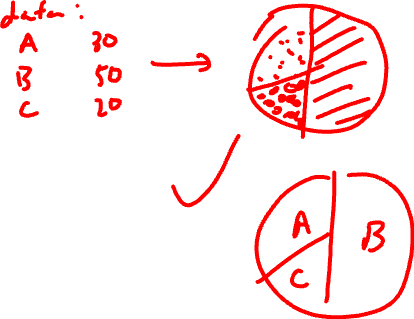 data:
A 30
B 50
C 20
A
B
C